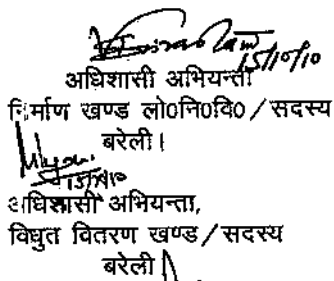 15/10/10
अधिशासी अभियन्ता
निर्माण खण्ड लो0नि0वि0/सदस्य
बरेली।
15/10/10
अधिशासी अभियन्ता,
विधुत वितरण खण्ड/सदस्य
बरेली